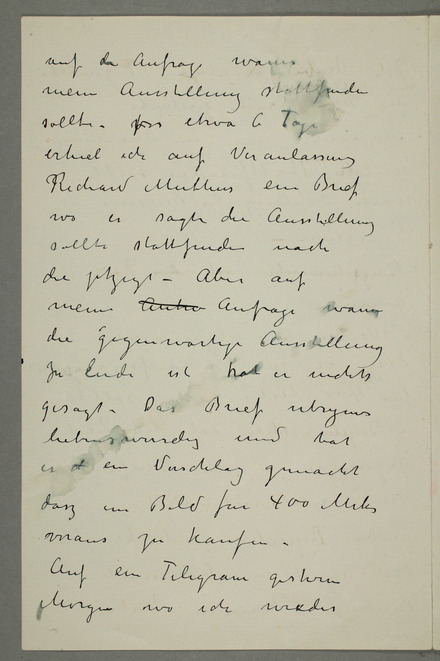 auf die Anfrage wann
mein Ausstellung stattfinden
sollte. vor etwa 6 Tage
erhiel ich auf Veranlassung
Richard Muthers ein Brief
wo er sagte die Ausstellung
sollte stattfinden nach
die jetzige – Aber auf
meine Anfrage wann
die gegenwartige Ausstellung
zu Ende ist hat er nichts
gesagt. Das Brief ubrigens
liebenswurdig und hat
er ein Vorschlag gemacht
dasz ein Bild fur 400 Marks
voraus zu kaufen.
Auf ein Telegram gestern
Morgen wo ich wieder